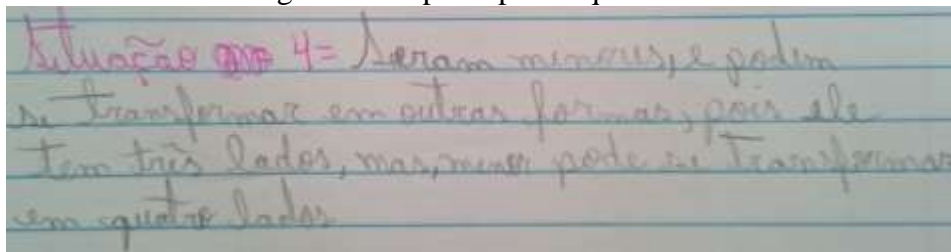 Situação 4= Seram menores, e podem
se transformar em outras formas, pois ele
tem três lados, mas, menor pode se transformar
em quatro lados